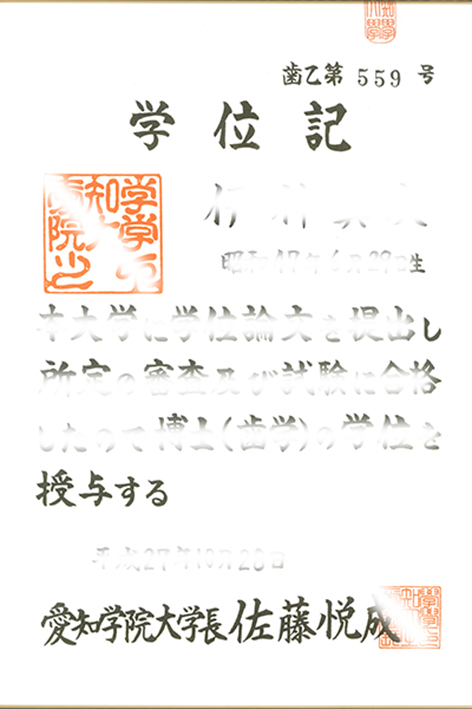 歯乙第 559 号
学位記
昭和 年6月29日生
本大学に学位論文を提出し
所定の審査及び試験に合格
したので博士(歯学)の学位を
授与する
平成27年10月28日
愛知学院大学長 佐藤悦成